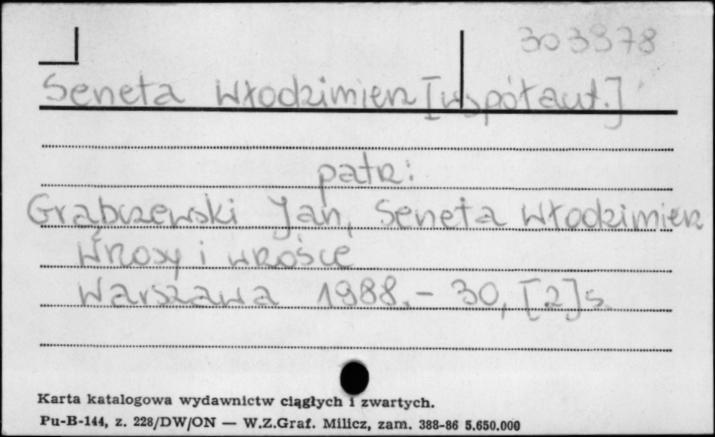 303378
Seneta Włodzimierz [współaut.]
patrz:
Grąbczewski Jan, Seneta Włodzimierz
Wrzosy i wrzośce
Warszawa 1988.- 30, [2] s.
Karta katalogowa wydawnictw ciągłych i zwartych.
Pu-B-144, z. 228/DW/ON — W.Z.Graf. Milicz, zam. 388-86 5.650.000